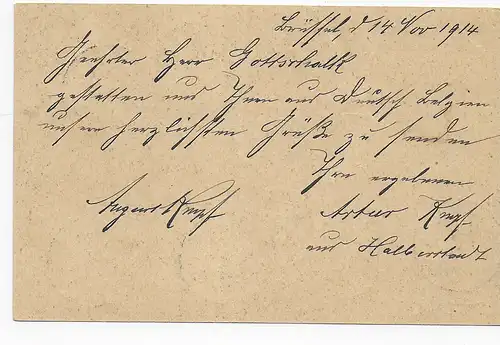 Brüssel, d 14 Nov 1914
Geehrter Herr Gottschalk
gestatten uns Ihnen aus Deutsch. Belgien
unsere herzlichsten Grüße zu senden
Ihre ergebenen
August Kempf Artur Kempf
aus Halberstadt